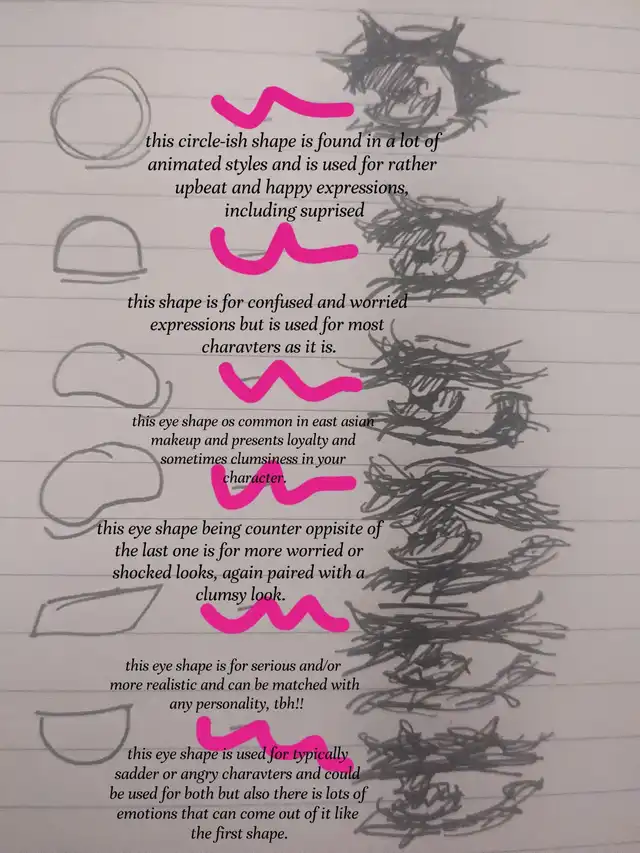 this circle-ish shape is found in a lot of
animated styles and is used for rather
upbeat and happy expressions,
including suprised
this shape is for confused and worried
expressions but is used for most
charavters as it is.
this eye shape os common in east asian
makeup and presents loyalty and
sometimes clumsiness in your
character.
this eye shape being counter oppisite of
the last one is for more worried or
shocked looks, again paired with a
clumsy look.
this eye shape is for serious and/or
more realistic and can be matched with
any personality, tbh!!
this eye shape is used for typically
sadder or angry charavters and could
be used for both but also there is lots of
emotions that can come out of it like
the first shape.